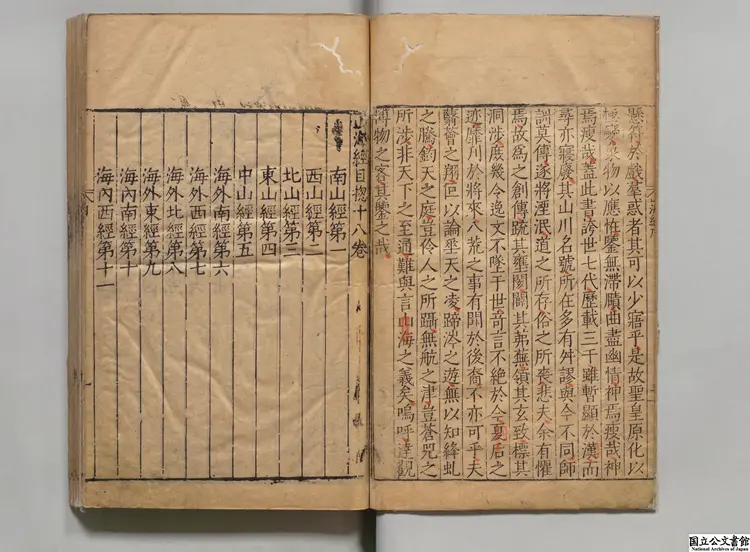 懸符於戲羣惑者其可以少寤乎是故聖皇原化以
極變象物以應恠鑒無滯賾曲盡幽情神焉瘦哉神
焉瘦哉蓋此書誇世七代歷載三千雖暫顯於漢而
尋亦寢廢其山川名號所在多有舛謬與今不同師
訓莫傳遂將湮泯道之所存俗之所喪悲夫余有懼
焉故為之創傳疏其壅閡闢其茀蕪領其玄致標其
洞涉庶幾令逸文不墜于世奇言不絕於今夏后之
迹靡刊於將來八荒之事有聞於後裔不亦可乎夫
翳薈之翔叵以論垂天之凌蹄涔之遊無以知絳虬
之騰鈞天之庭豈伶人之所躡無航之津豈蒼兕之
所涉非天下之至通難與言山海之義矣嗚呼達觀
博物之客其鑒之哉
山海經目揔十八卷
南山經第一
西山經第二
北山經第三
東山經第四
中山經第五
海外南經第六
海外西經第七
海外北經第八
海外東經第九
海內南經第十
海內西經第十一
国立公文書館
National Archives of Japan